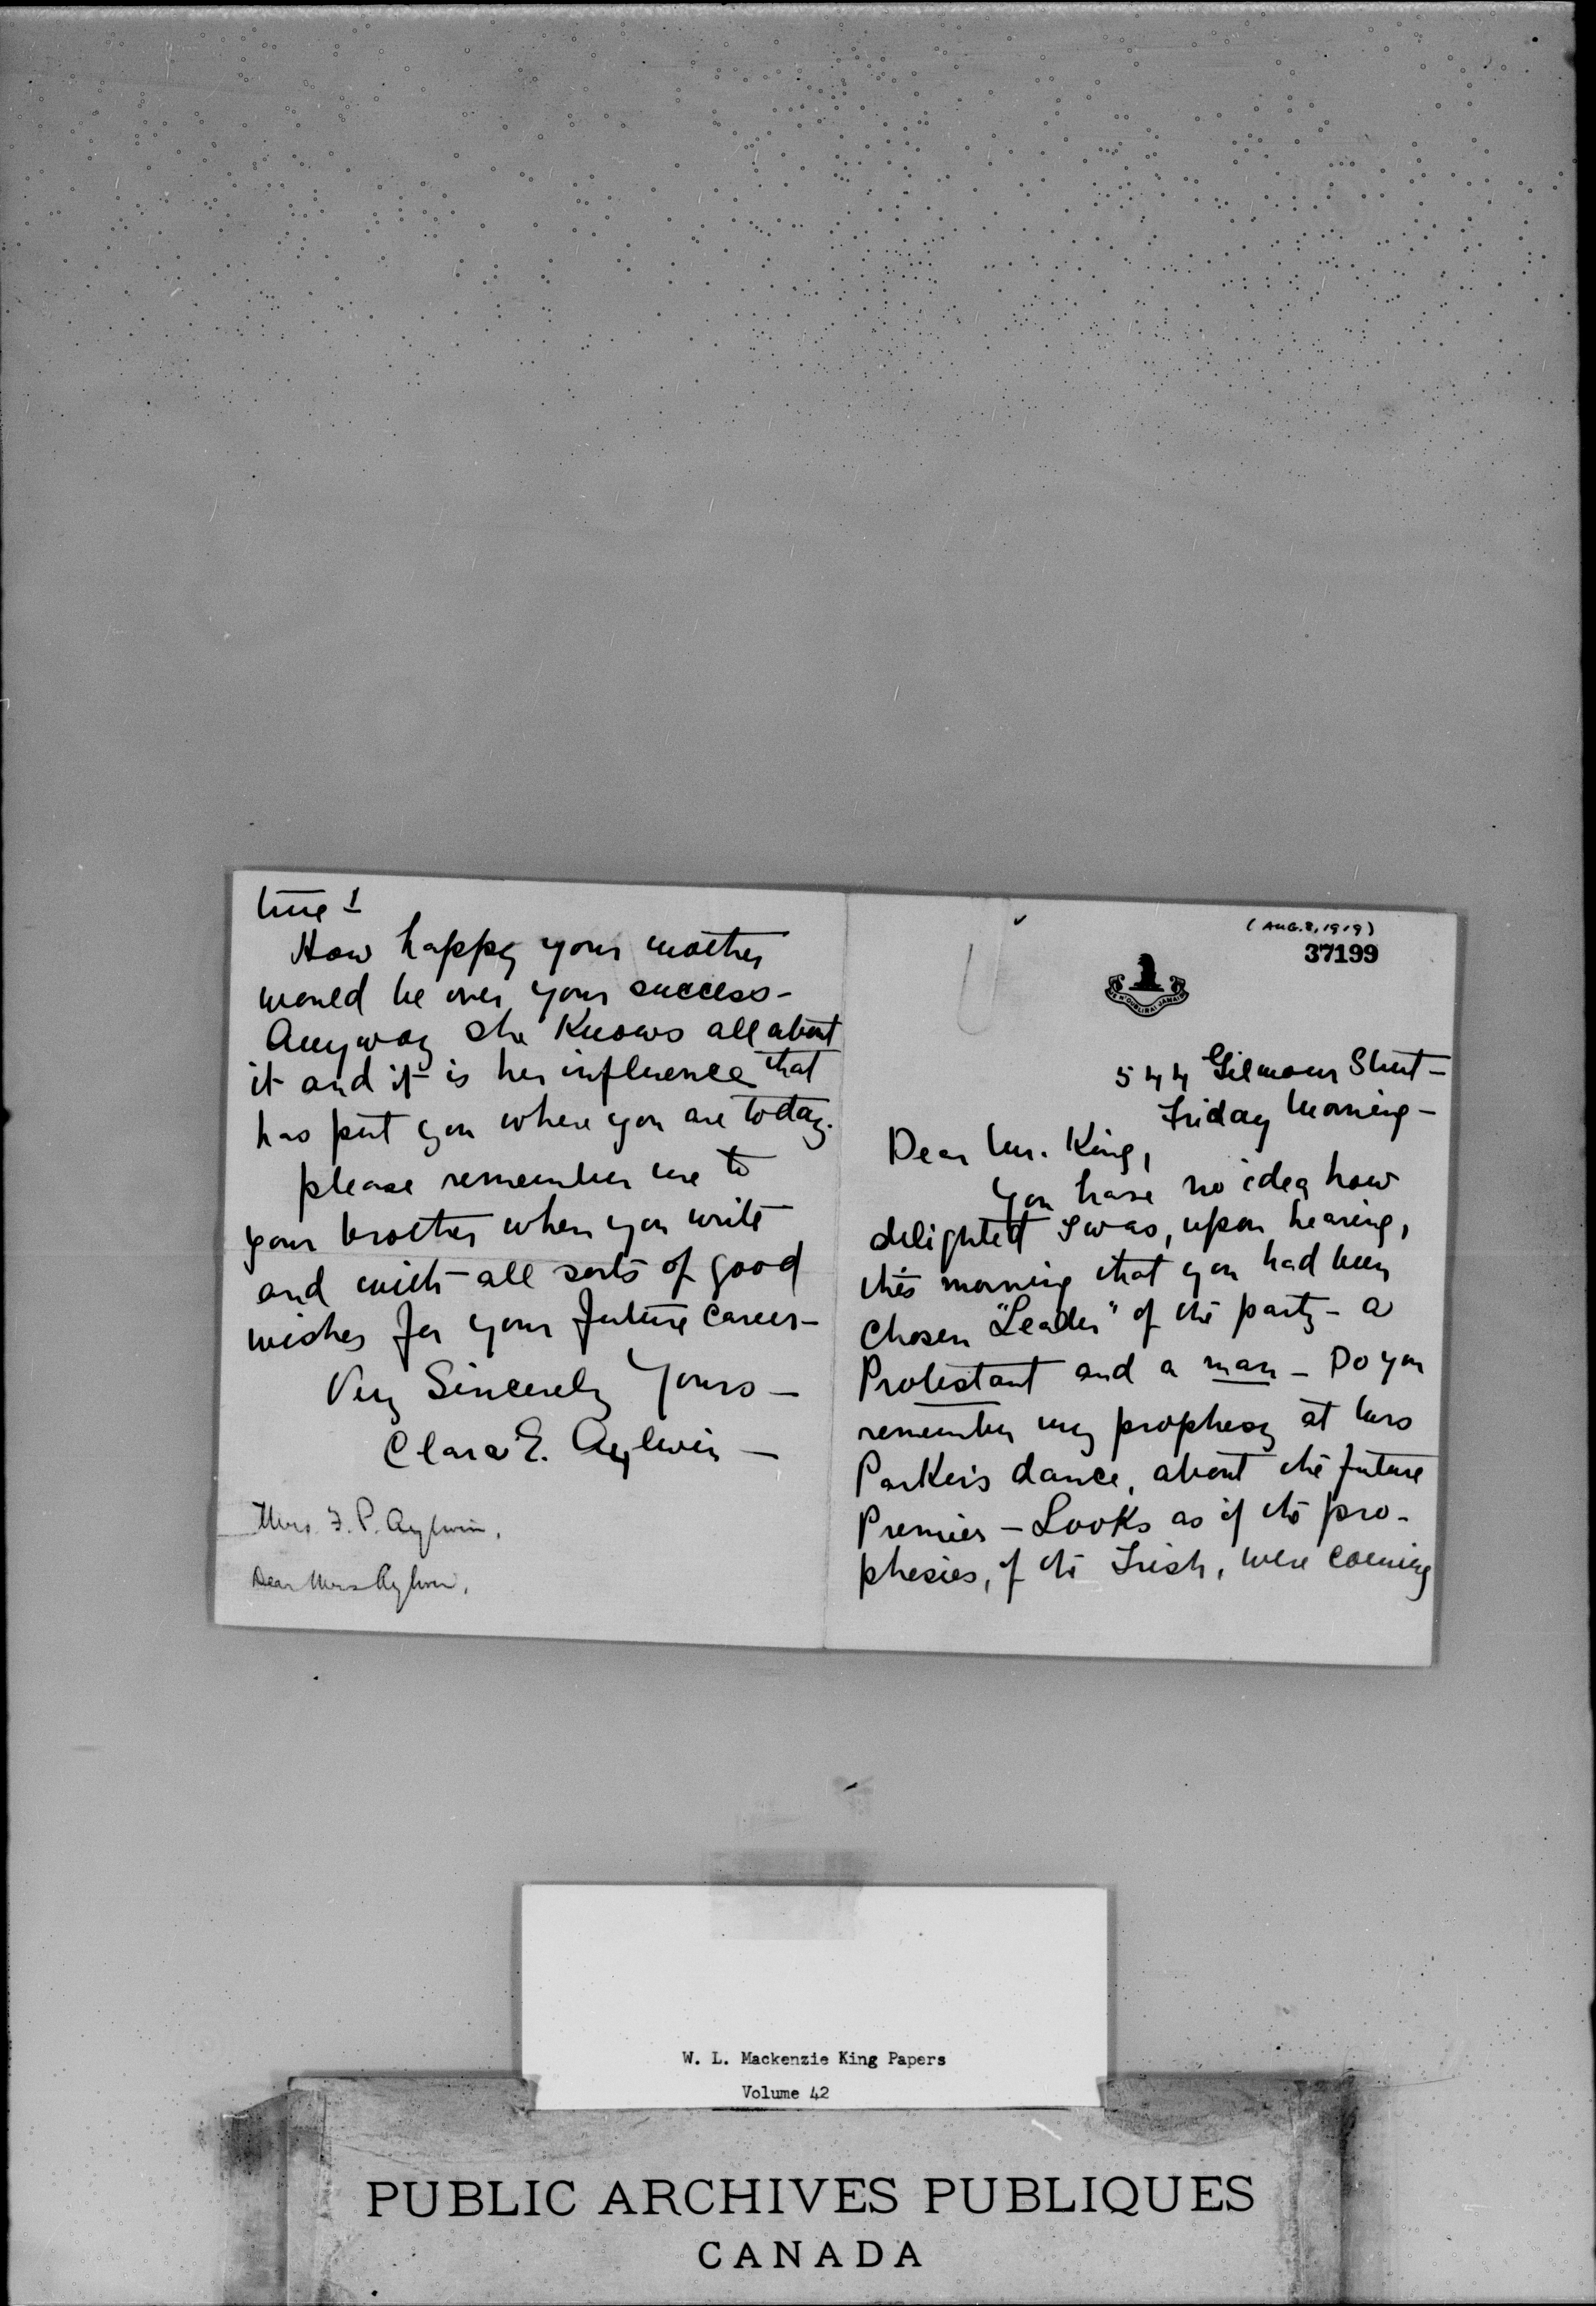 (AUG. 8, 1919)
37199
JE N'OUBLIRAI JAMAIS
544 Gilmour Street –
Friday Morning –
Dear Mr. King,
You have no idea how
delighted I was, upon hearing,
this morning that you had been
chosen "Leader" of the party – a
Protestant and a man – Do you
remember my prophesy at Mrs
Parker's dance, about the future
Premier – Looks as if the pro-
phesies, of the Irish, were coming
true!
How happy your mother
would be over your success –
Anyway she Knows all about
it and it is her influence that
has put you where you are today.
please remember me to
your brother when you write
and with all sorts of good
wishes for your future career –
Very Sincerely Yours –
Clara E. Aylwin –
Mrs. F. P. Aylwin,
Dear Mrs Aylwin,
W. L. Mackenzie King Papers
Volume 42
PUBLIC ARCHIVES PUBLIQUES
CANADA